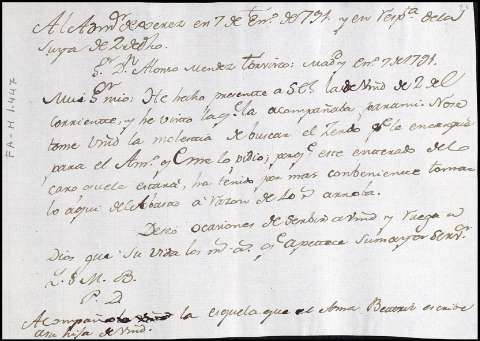 Al Adm.r de Xerez en 7 de En.o de 1791. y en resp.ta de la
suya de 2 de d.ho
S.r D.n Alonso Mendez Torvisco: Mad.d y en.o 7 de 1791.
Mui S.r mio: He hecho presente a S.E. la de Vmd de 2 del
corriente, y he visto la q.e la acompañaba para mi. No se
tome Vmd la molestia de buscar el Zerdo q.e le encargué
para el Am.o q.e me lo pidio; porq.e este enterado de
caro que la estará, ha tenido por mas conbeniente tomar
lo aqui de el Abasto a razon de 40 r.s arroba.
Deseo ocasiones de serbir a Vmd y ruego a
Dios que su vida los m.s a.s q.e apetece su mayor serv.r
Q. S. M. B.
P. D.
Acompaña la esquela que el Ama Beatriz escribe
a su hija de Vmd.
FA-H 1.447